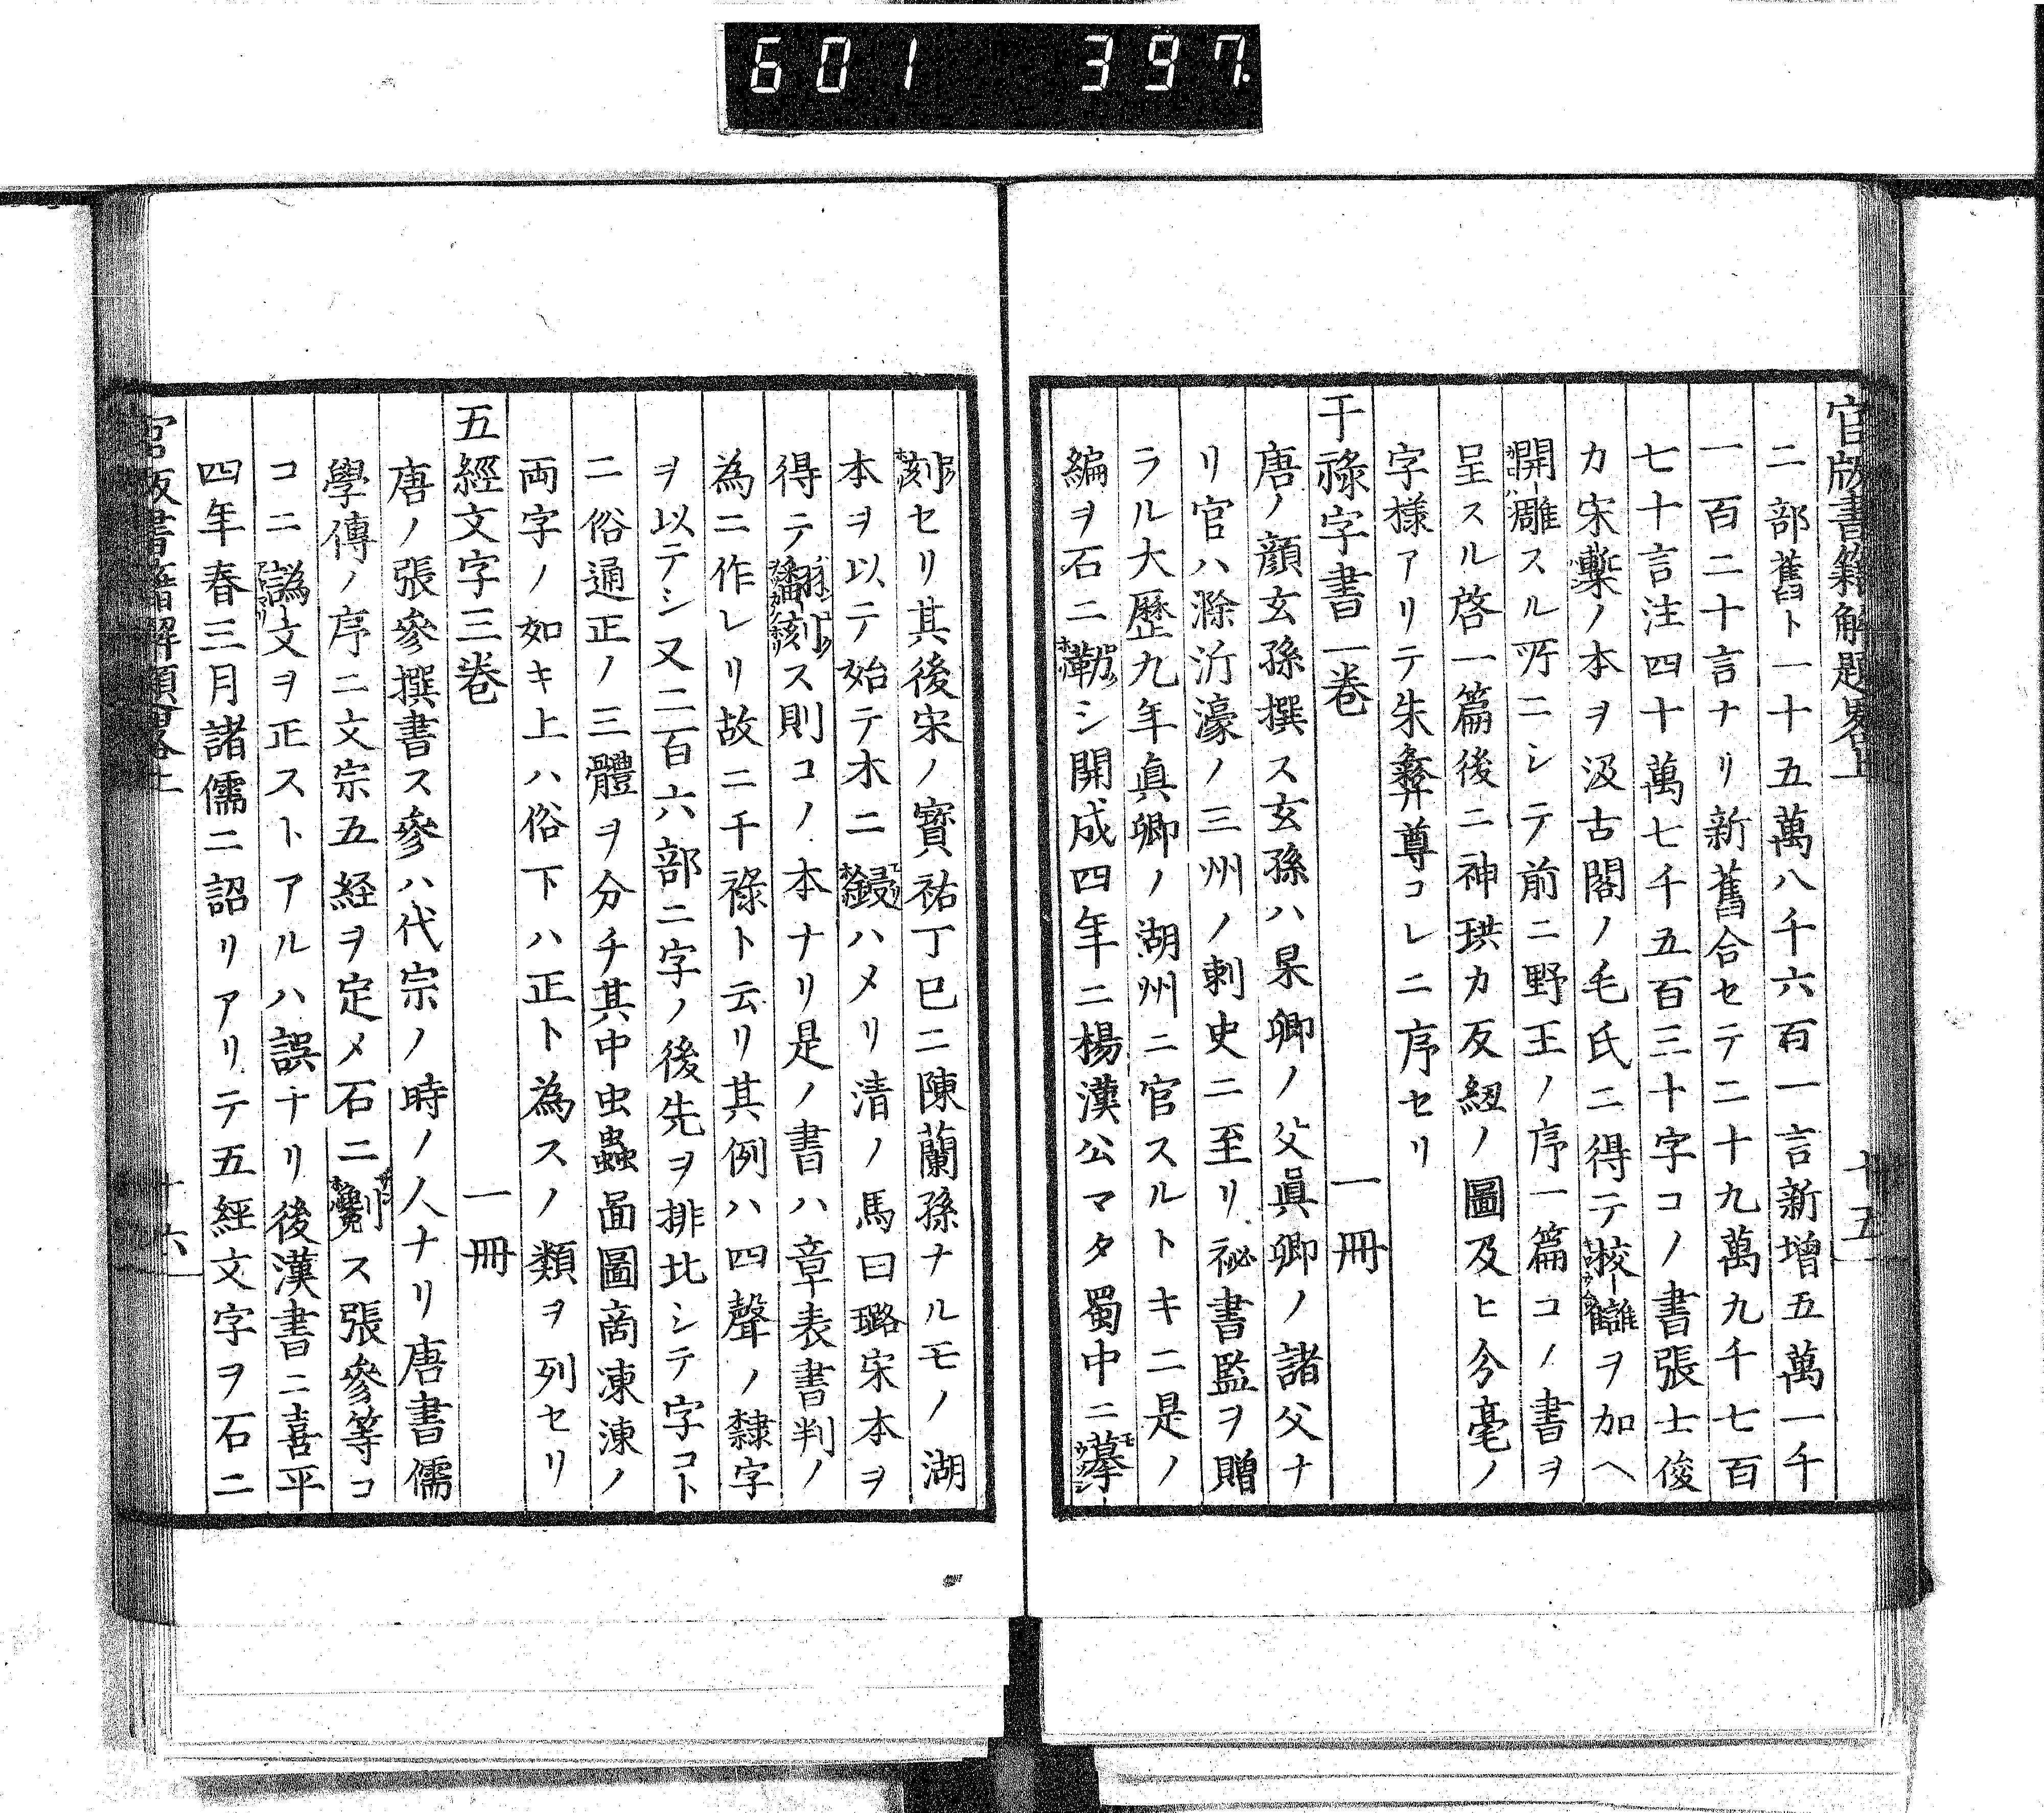 601 397.
官版書籍解題畧上 十五
二部舊ト一十五萬八千六百一言新增五萬一千
一百二十言ナリ新舊合セテ二十九萬九千七百
七十言注四十萬七千五百三十字コノ書張士俊
カ宋槧ノ本ヲ汲古閣ノ毛氏ニ得テ挍讎ヲ加ヘ
開雕スル所ニシテ前ニ野王ノ序一篇コノ書ヲ
呈スル啓一篇後ニ神珙カ反紐ノ圖及ヒ分毫ノ
字㨾アリテ朱彝尊コレニ序セリ
干祿字書一卷 一冊
唐ノ顔玄孫撰ス玄孫ハ杲卿ノ父眞卿ノ諸父ナ
リ官ハ滁沂濠ノ三州ノ刺史ニ至リ祕書監ヲ贈
ラル大歷九年眞卿ノ湖州ニ官スルトキニ是ノ
編ヲ石ニ勒シ開成四年ニ楊漢公マタ蜀中ニ摹
刻セリ其後宋ノ寳祐丁巳ニ陳蘭孫ナルモノ湖
本ヲ以テ始テ木ニ鋟ハメリ清ノ馬曰璐宋本ヲ
得テ翻刻ス則コノ本ナリ是ノ書ハ章表書判ノ
為ニ作レリ故ニ干祿ト云リ其例ハ四聲ノ隸字
ヲ以テシ又二百六部ニ字ノ後先ヲ排比シテ字コト
ニ俗通正ノ三體ヲ分チ其中虫蟲啚圖啇凍涷ノ
両字ノ如キ上ハ俗下ハ正ト為スノ類ヲ列セリ
五經文字三卷 一冊
唐ノ張參撰書ス參ハ代宗ノ時ノ人ナリ唐書儒
學傳ノ序ニ文宗五経ヲ定メ石ニ劖ス張參等コ
コニ譌文ヲ正ストアルハ誤ナリ後漢書ニ熹平
四年春三月諸儒ニ詔リアリテ五經文字ヲ石ニ
官版書籍解題畧上 十六